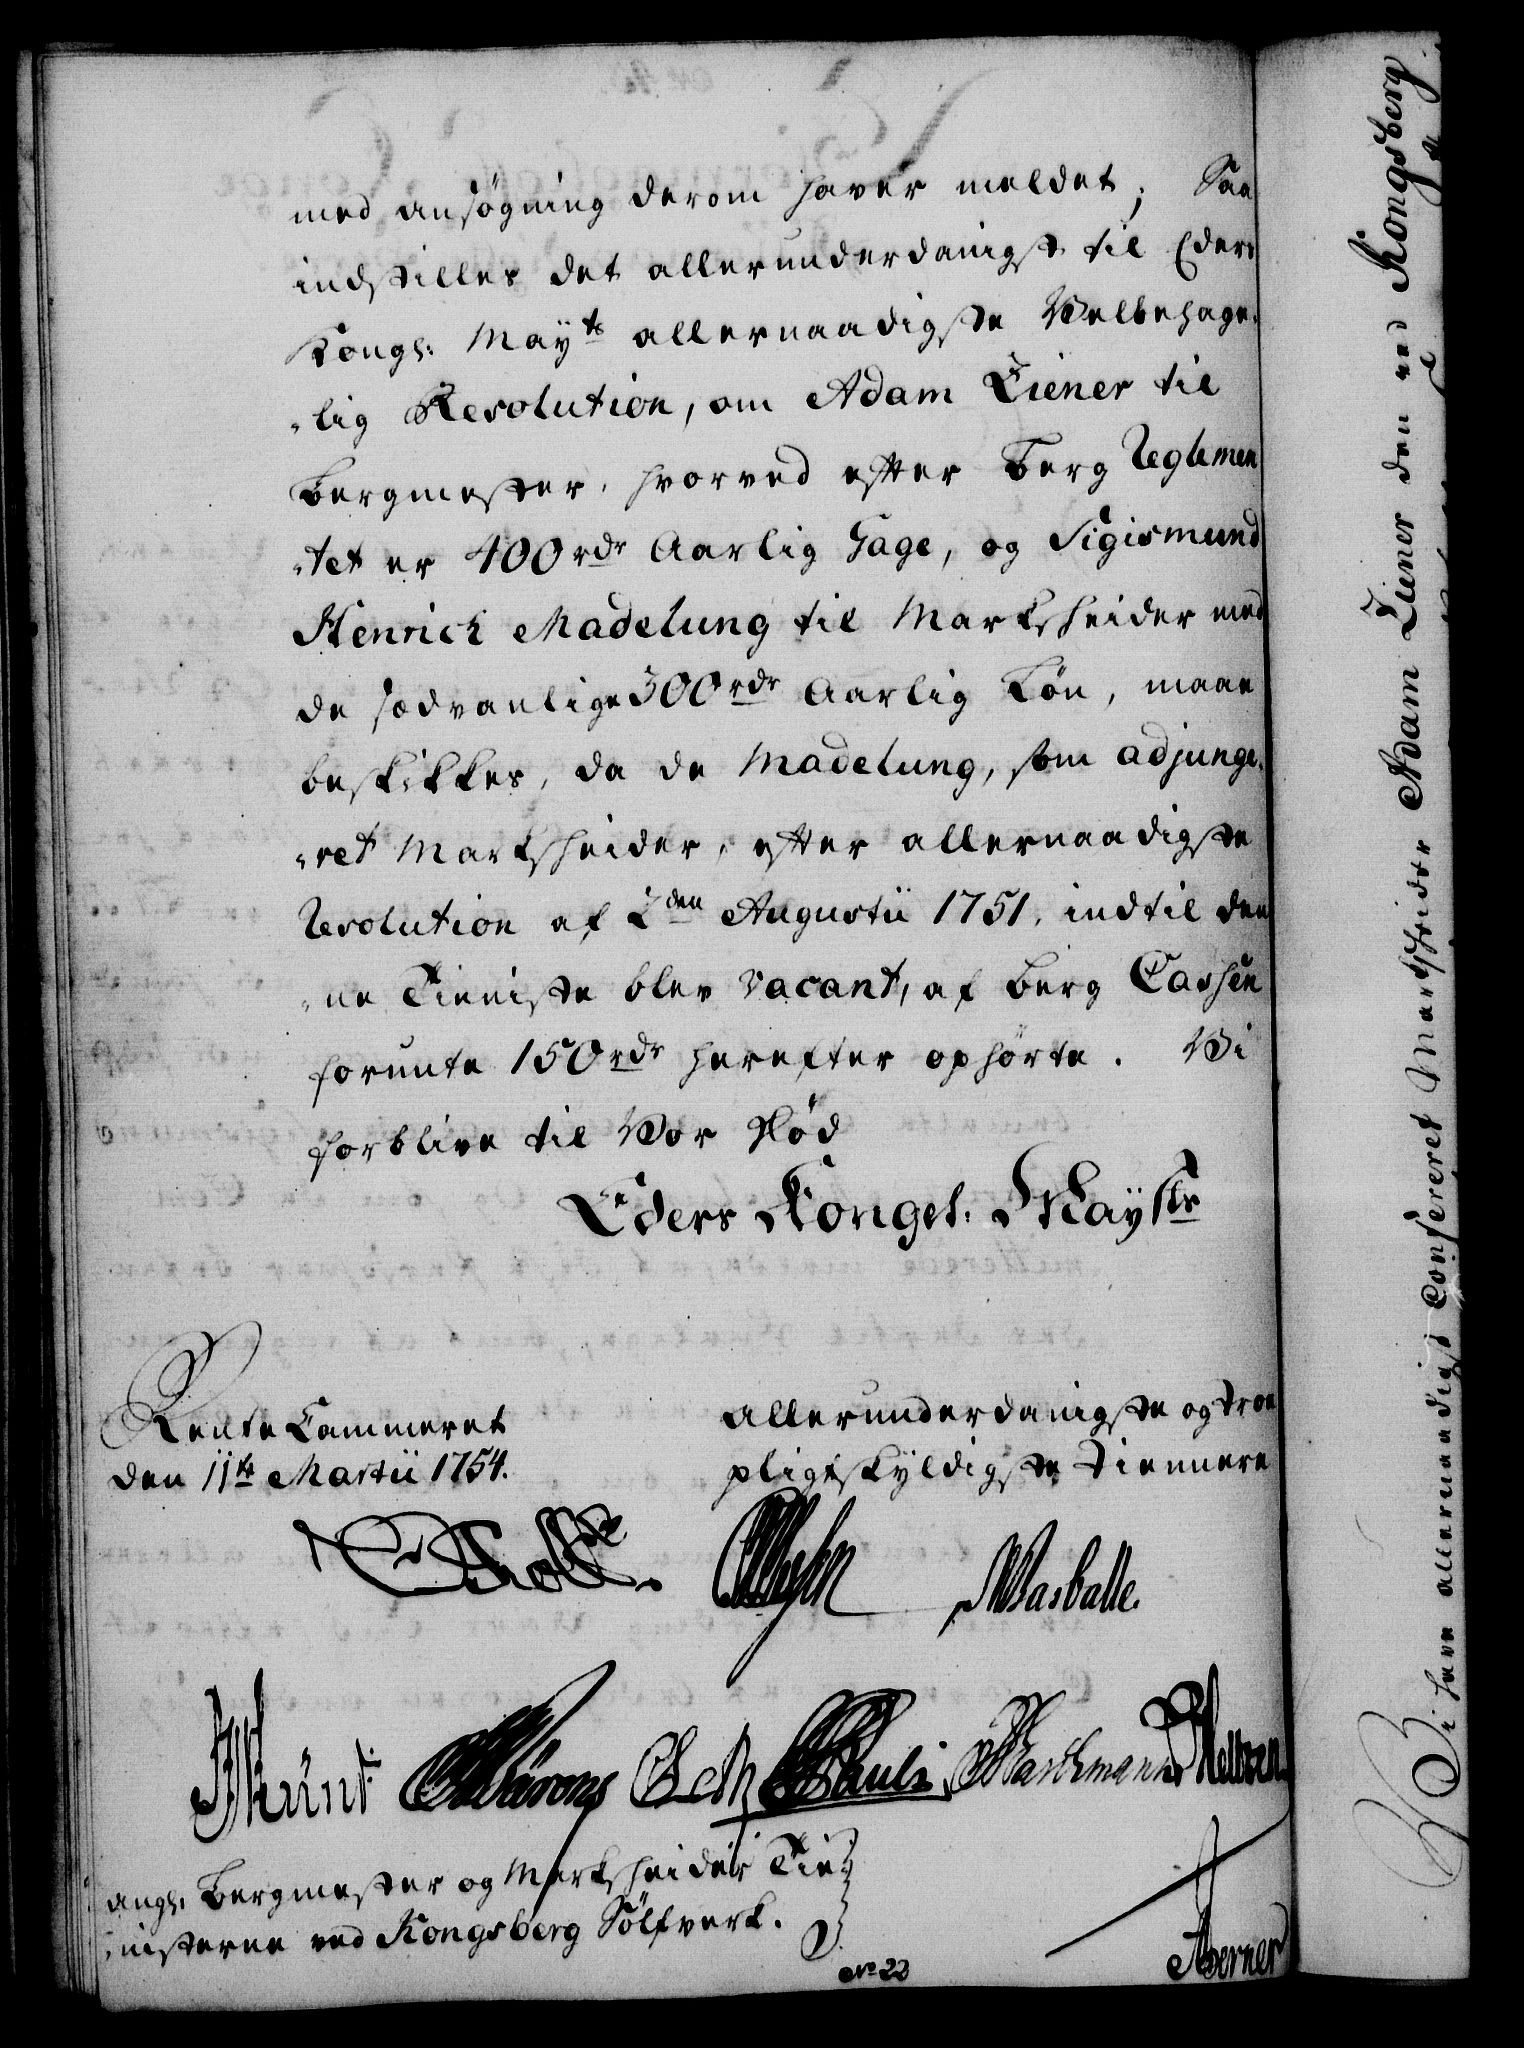 med ansøgning derom haver meldet; Saa
indstilles det allerunderdanigst til Eders
Kongl: Mayts allernaadigste Velbehage-
-lig Resolution, om Adam Ziener til
Bergmester, hvorved efter Berg Reglemen
-tet er 400 rdr Aarlig Gage, og Sigismund
Henrich Madelung til Markscheider med
de sædvanlige 300 rdr Aarlig Løn, maae
beskikkes, da de Madelung, som adjunge-
-ret Markscheider, efter allernaadigste
Resolution af 2den Augustii 1751, indtil den
-ne Tieniste blev vacant, af Berg Cassen
forunte 150 rdr herefter ophørte. Vi
forblive til Vor Død
Eders Kongel: Maysts
Rente Cammeret
den 11te Martii 1754.
allerunderdanigste og troe
pligtskyldigste Tiennere
Holst.
Wasballe.
Pauli
Aserner
angl: Bergmester og Markscheider Tie-
-nisterne ved Kongsberg Sølfverk.
No 22
Vi have allernaadigst Confereret Markscheider Adam Ziener den ved Kongsberg